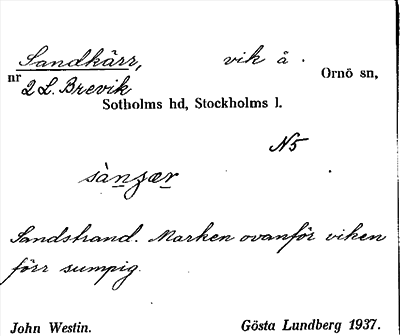 Sandkärr, vik å.
nr 2 L. Brevik Ornö sn,
Sotholms hd, Stockholms l.
N5
sànʒær
Sandstrand. Marken ovanför viken
förr sumpig.
John Westin. Gösta Lundberg 1937.